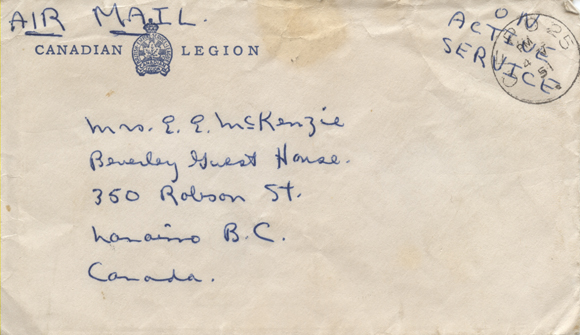 AIR MAIL.
CANADIAN LEGION
ON
ACTIVE
SERVICE.
25
4
51
Mrs. E. E. McKenzie
Beverley Guest House.
350 Robson St.
Nanaimo B.C.
Canada.